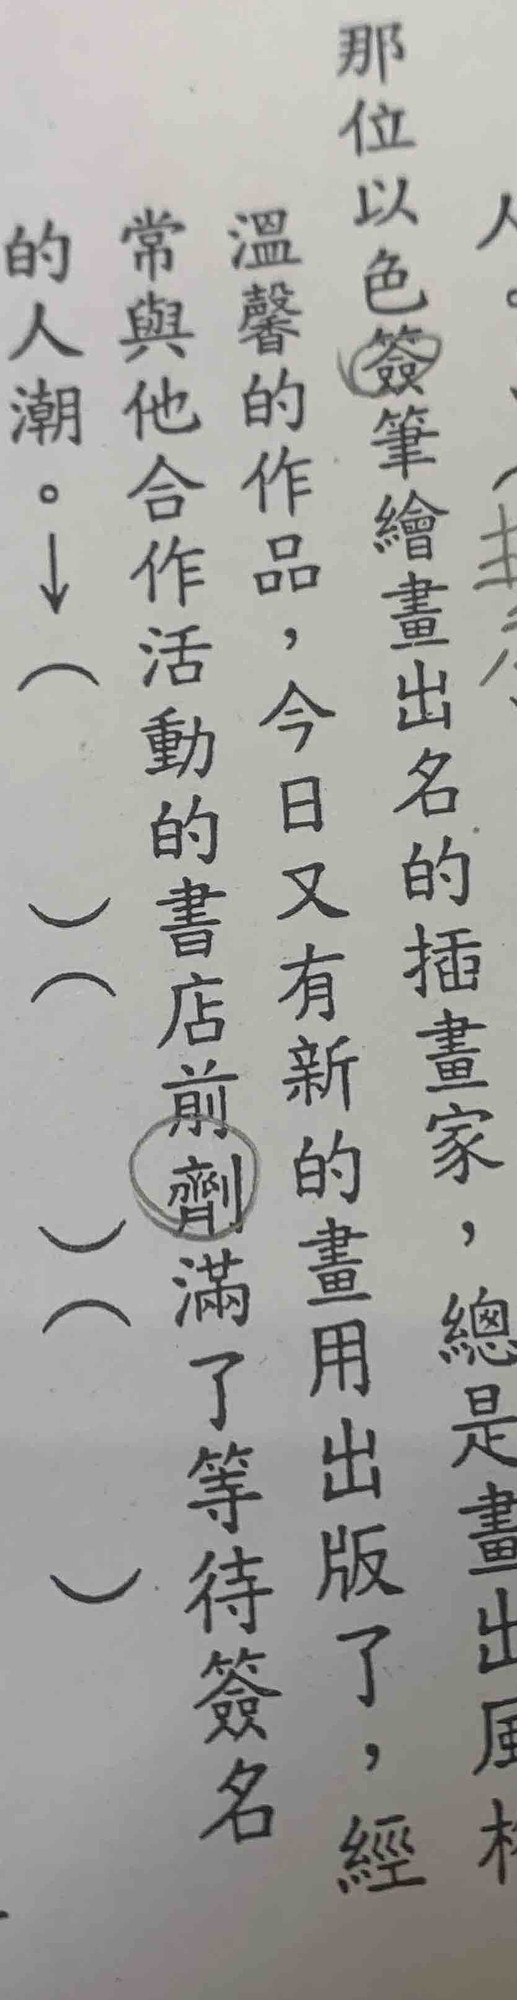 人。
那位以色簽筆繪畫出名的插畫家，總是畫出風格
溫馨的作品，今日又有新的畫用出版了，經
常與他合作活動的書店前劑滿了等待簽名
的人潮。↓（　）（　）（　）